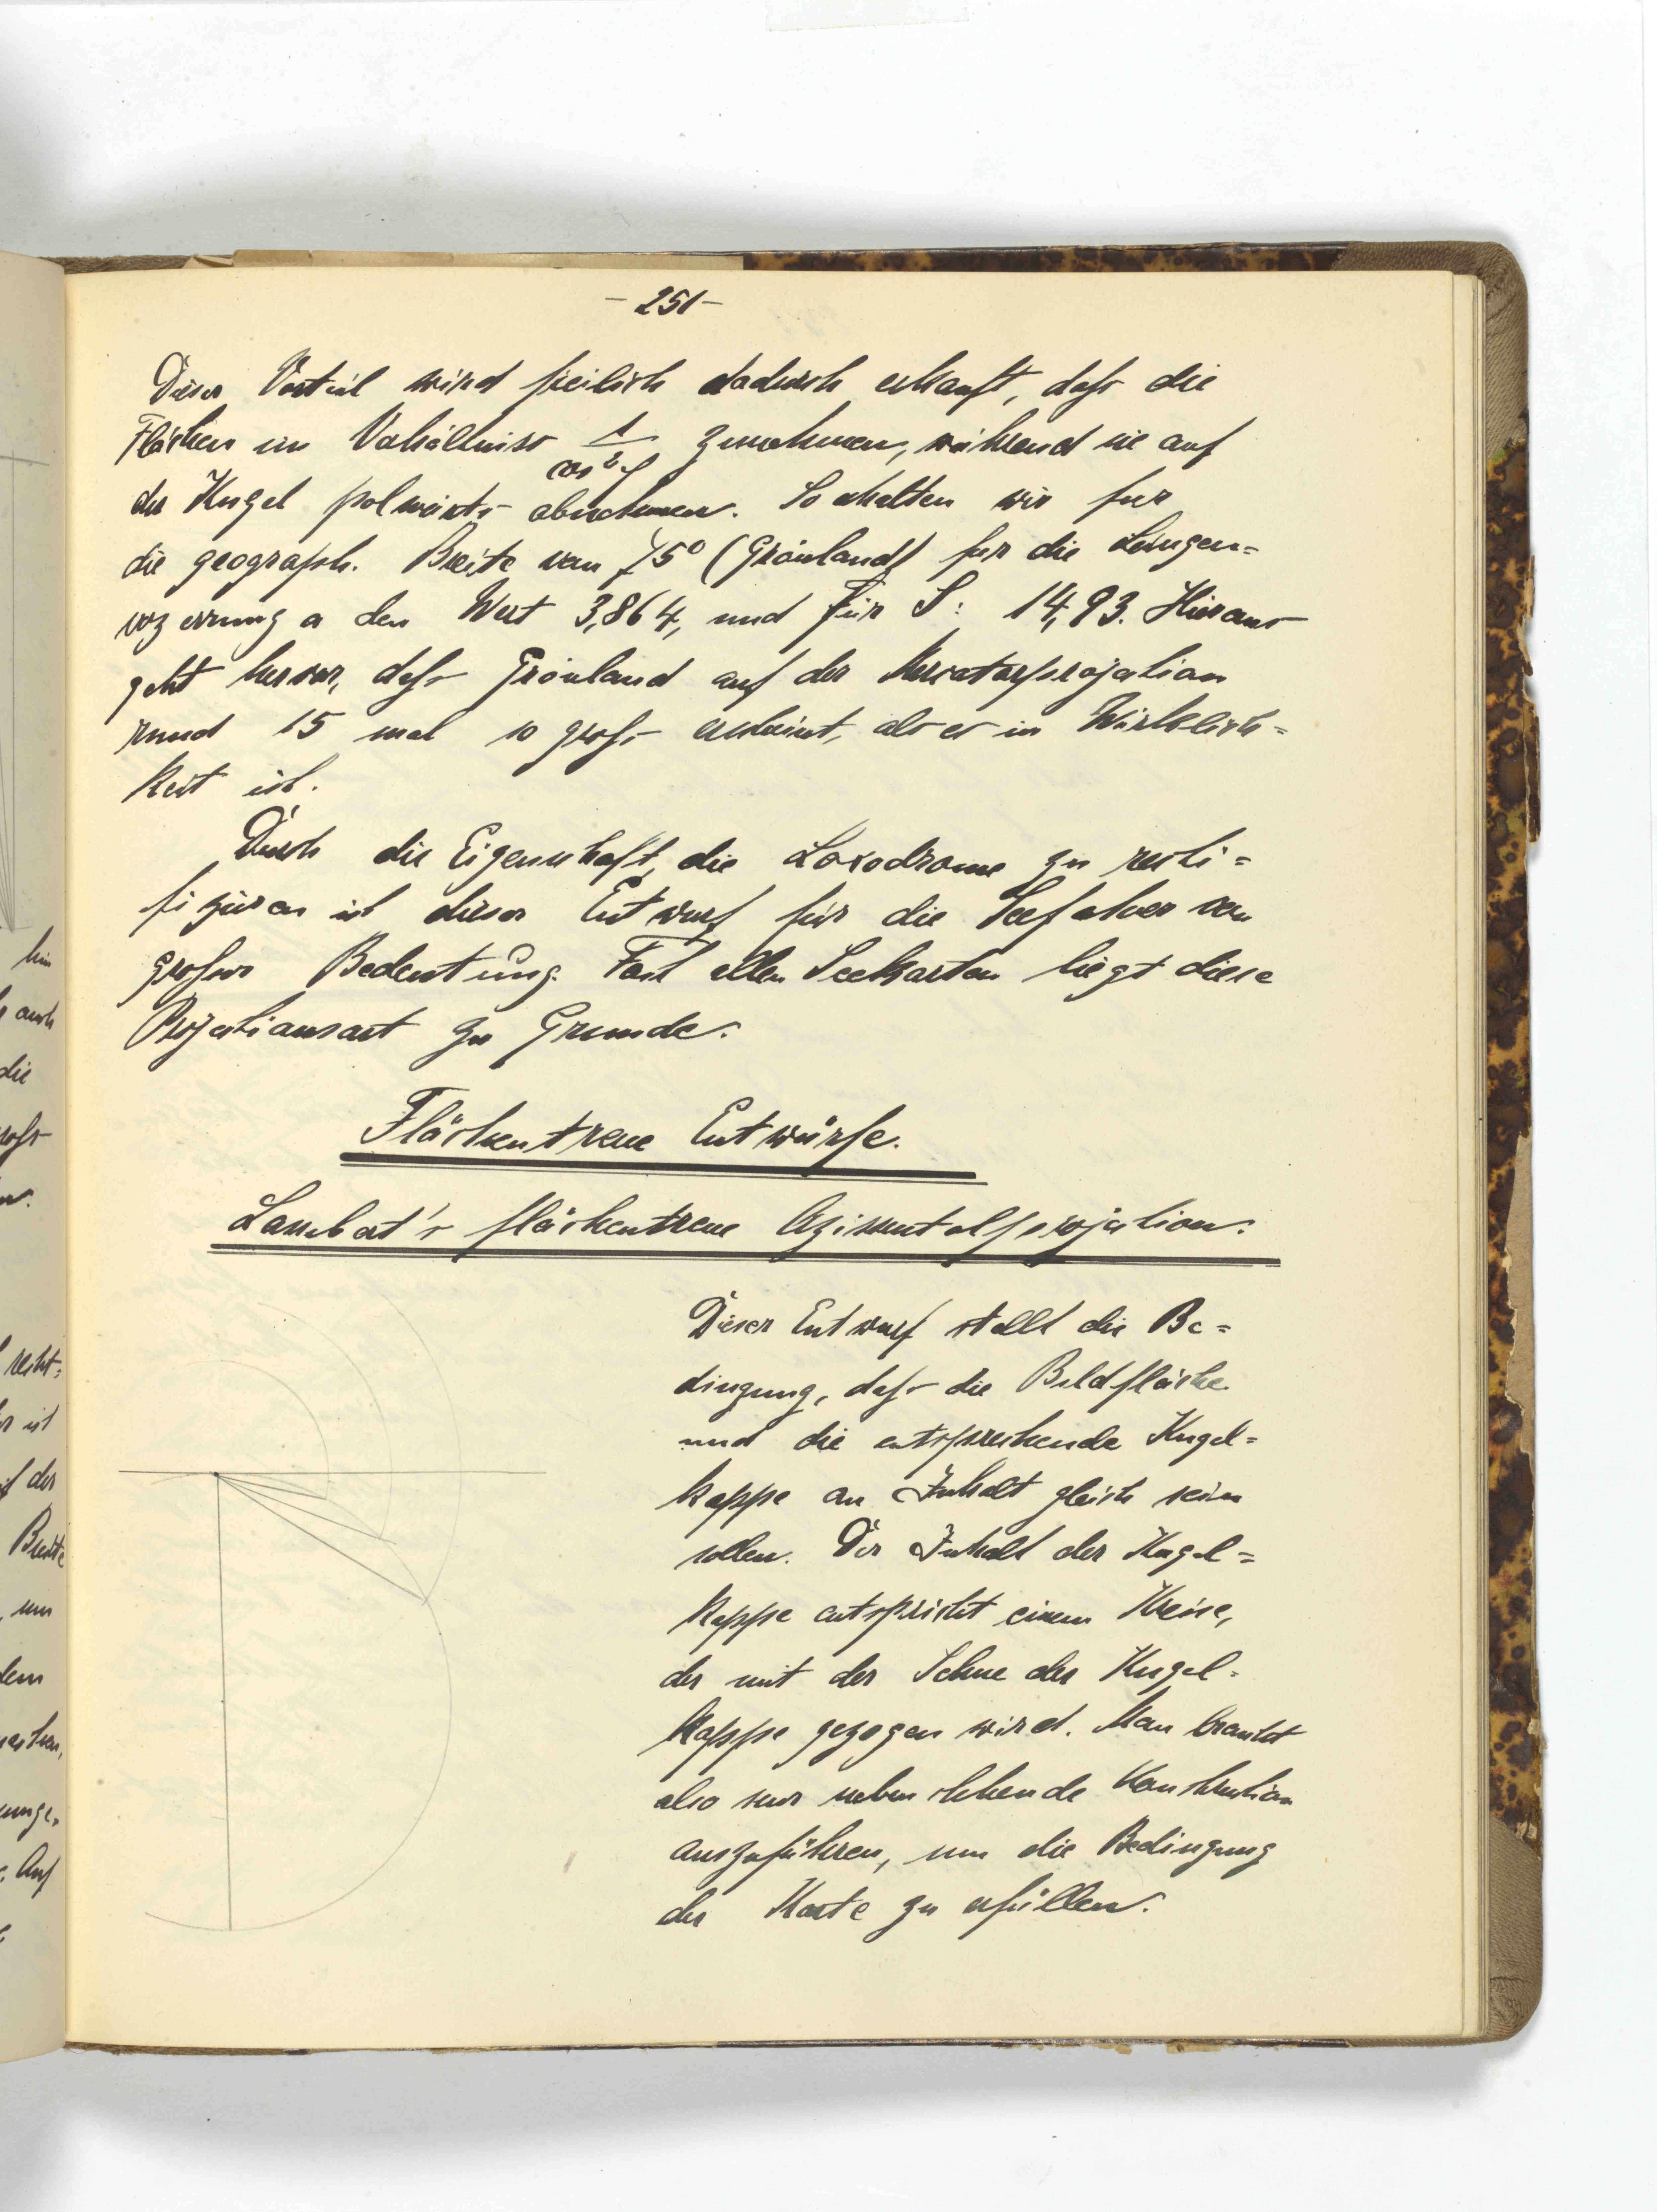 - 251 -
Dieser Vorteil wird freilich dadurch erkauft, dass die
Flächen im Verhältniss 1/cos²φ zunehmen, während sie auf
der Kugel polwärts abnehmen. So erhalten wir fur
die geograph. Breite von 75° (Grönland) fur die Längen=
verzerrung a den Wert 3,864, und für S: 14,93. Hieraus
geht hervor, dass Grönland auf der Mercatorprojektion
rund 15 mal so gross erscheint, als es in Wirklich=
keit ist.
Durch die Eigenschaft, die Loxodrome zu recti=
fizieren ist dieser Entwurf für die Seefahrer von
grosser Bedeutung. Fast allen Seekarten liegt diese
Projektionsart zu Grunde.
Flächentreue Entwürfe.
Lambert's flächentreue Azimutalprojektion.
Dieser Entwurf stellt die Be=
dingung, dass die Bildfläche
und die entsprechende Kugel=
kappe an Inhalt gleich sein
sollen. Der Inhalt der Kugel=
kappe entspricht einem Kreise,
der mit der Sehne der Kugel=
kappe gezogen wird. Man braucht
also nur nebenstehende Konstruktion
auszuführen, um die Bedingung
der Karte zu erfüllen.
hin
auch
die
gross
recht=
ist
der
Breite
um
dem
Auf